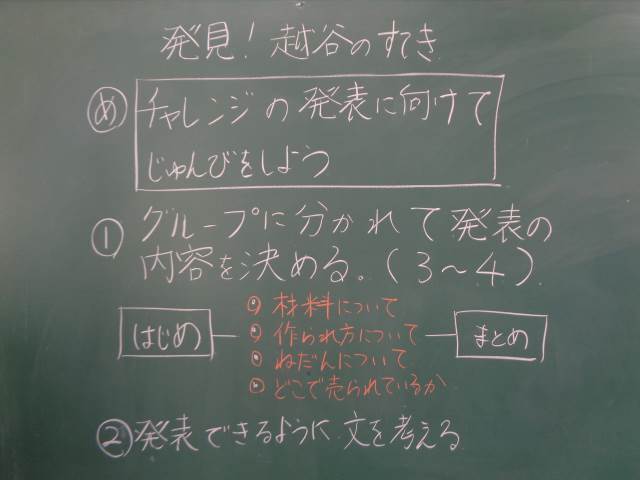 発見！越谷のすてき
め チャレンジの発表に向けて
じゅんびをしよう
① グループに分かれて発表の
内容を決める。（３～４）
はじめ
材料について
作られ方について
ねだんについて
どこで売られているか
まとめ
② 発表できるように文を考える